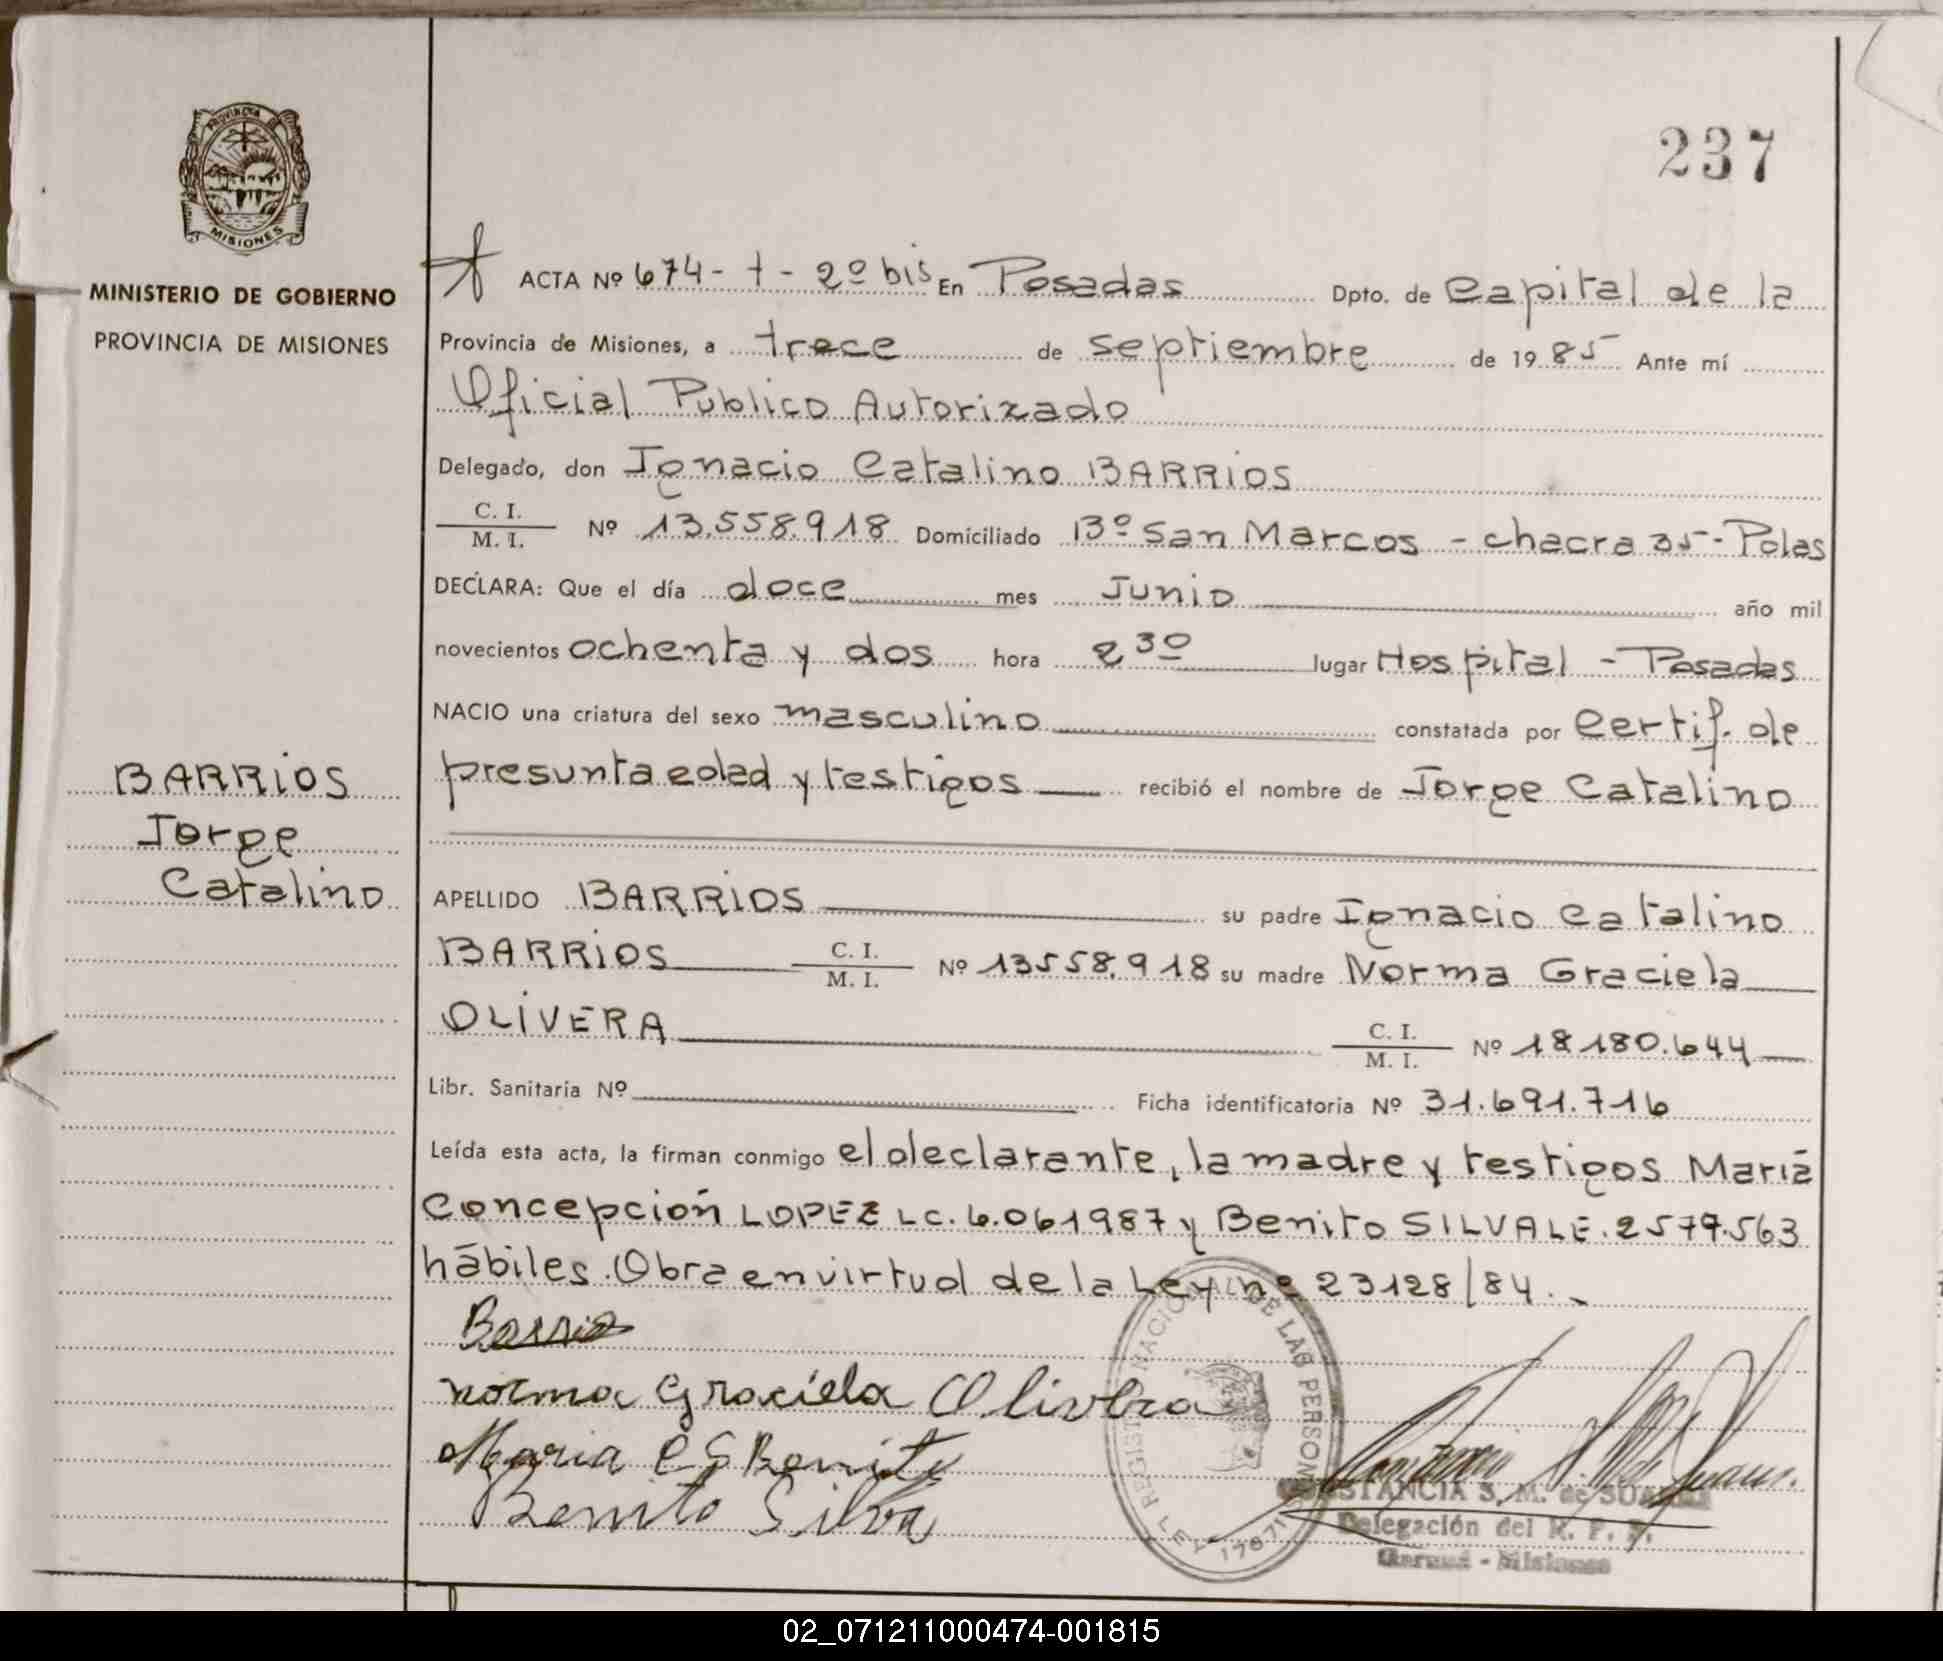 237
PROVINCIA
MISIONES
MINISTERIO DE GOBIERNO
PROVINCIA DE MISIONES
ACTA Nº 674 - t - 2º bis En Posadas Dpto. de Capital de la
Provincia de Misiones, a trece de septiembre de 1985 Ante mí
Oficial Publico Autorizado
Delegado, don Ignacio Catalino BARRIOS
C. I.
M. I. Nº 13.558.918 Domiciliado Bº San Marcos - chacra 35 - Pdas
DECLARA: Que el día doce mes Junio año mil
novecientos ochenta y dos hora 2 30 lugar Hospital - Posadas
NACIO una criatura del sexo masculino constatada por Certif. de
presunta edad y testigos recibió el nombre de Jorge Catalino
BARRIOS
Jorge
Catalino
APELLIDO BARRIOS su padre Ignacio Catalino
BARRIOS C. I. M. I. Nº 13558.918 su madre Norma Graciela
OLIVERA C. I. M. I. Nº 18180.644
Libr. Sanitaria Nº Ficha identificatoria Nº 31.691.716
Leída esta acta, la firman conmigo el declarante, la madre y testigos Maria
Concepción LOPEZ LC. 6.061987 y Benito SILVA LE. 2577.563
hábiles. Obra en virtud de la Ley nº 23128/84.
Barrios
norma Graciela Olivera
Maria
Benito Silva
REGISTRO NACIONAL DE LAS PERSONAS
LEY 17671
CONSTANCIA S. M. de SUAREZ
Delegación del R. P. P.
Misiones
02_071211000474-001815